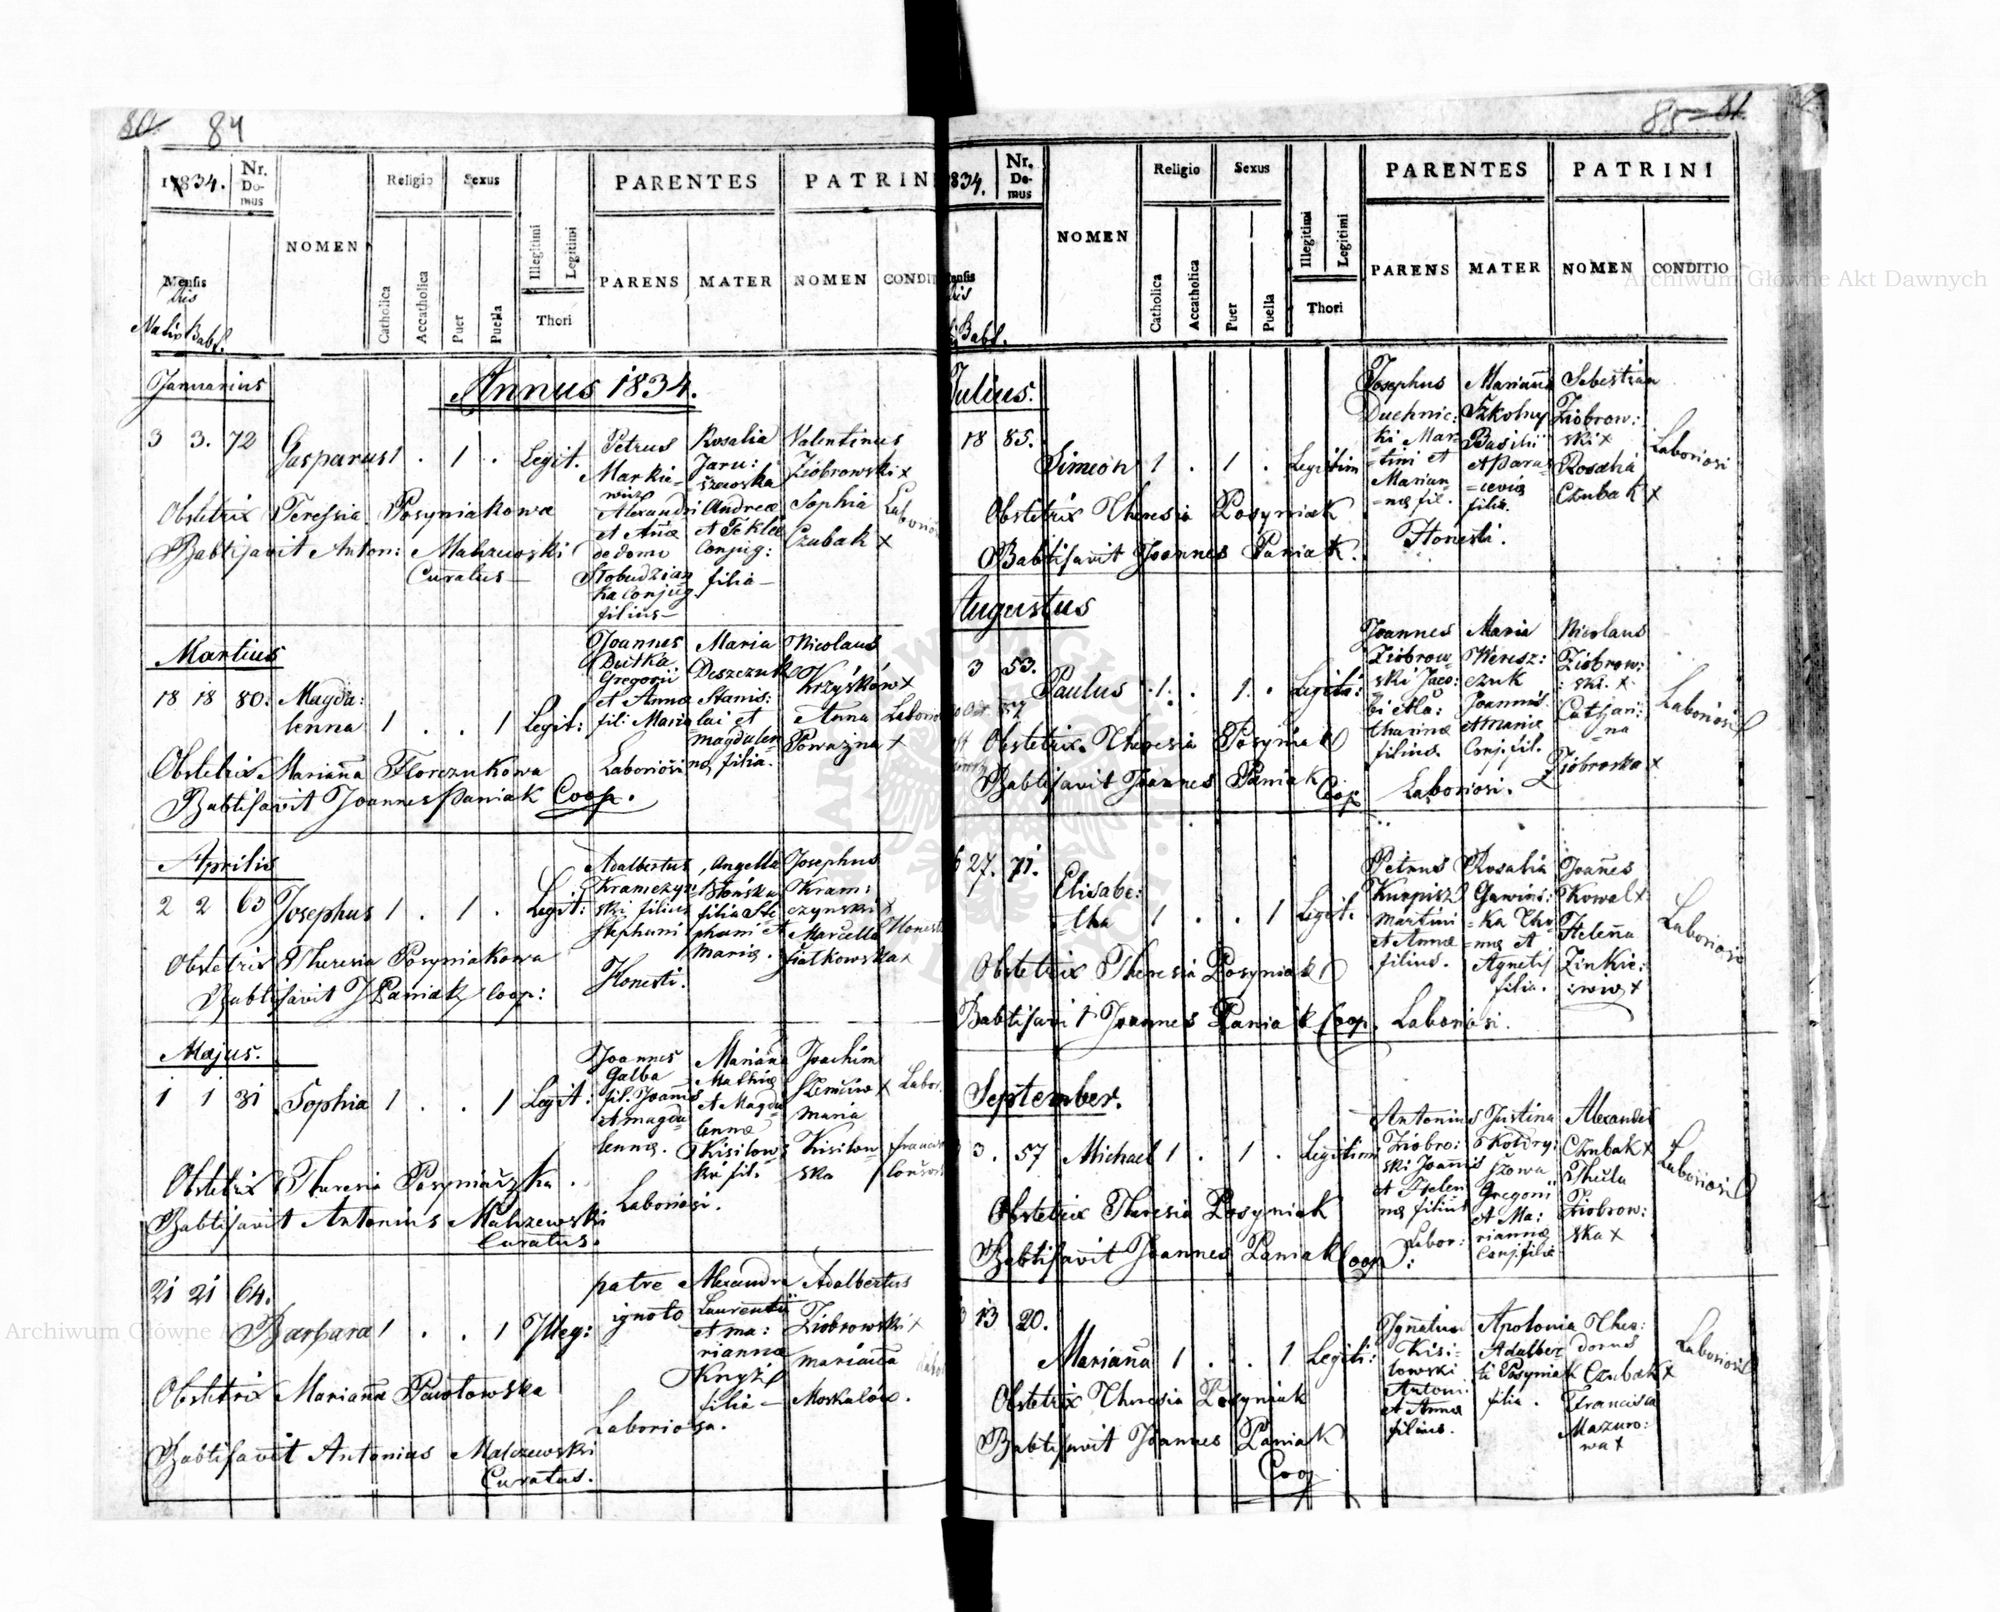 84
1834.
Nr. Do- mus
NOMEN
Religio
Sexus
PARENTES
PATRINI
Mensis
dies
Nativ Babt.
Catholica
Accatholica
Puer
Puella
Illegitimi
Legitimi
Thori
PARENS
MATER
NOMEN
Januarius
Annus 1834.
3 3. 72 Gasparus 1 . 1 . Legit.
Petrus
Markie-
wicz
Alexandri
et Annæ
de domo
ka Conjug
filius
Rosalia
Jaru:
szewska
Andreæ
et Teklæ
Conjug:
filia
Valentinus
Ziobrowski x
Sophia
Czubak x
Obstetrix Teressia Posyniakowa
Babtisavit Anton: Malczewski
Curatus
Martius
18 18 80. Magda:
lenna 1 . . 1 Legit:
Joannes
Dutka
Gregorii
et Annæ
fil:
Laboriosi
Maria
Deszczuk
Stanis:
lai et
Magdalen
næ filia.
Nicolaus
Krzyśków x
Anna
Poważna x
Obstetrix Marianna Florczukowa
Babtisavit Joannes Paniak Coop.
Aprilis
2 2 63 Josephus 1 . 1 . Legit:
Adalbertus
Kramczyn
ski filius
Stephani
Honesti.
Angella
Stońska
filia Ste
phani et
Mariæ.
Josephus
Kram:
czynski x
Marcella
Fiatkowska x
Obstetrix Theresia Posyniakowa
Babtisavit J Paniak Coop:
Majus.
1 1 31 Sophia 1 . . 1 Legit:
Joannes
Galba
fil. Joannis
et Magda
lennæ.
Laboriosi.
Marianna
Mathiæ
et Magda
lennæ
Kisilow
ski fil.
Joachim
Maria
Kisilow
ska
Obstetrix Theresia Posyniaczka.
Babtisavit Antonius Malczewski
Curatus.
21 21 64.
Barpara 1 . . 1 Illeg:
patre
ignoto
Laboriosa.
Alexandra
Laurentii
et Ma:
riannæ
Knyż
filia
Adalbertus
Ziobrowski x
Marianna
Moskalow.
Obstetrix Marianna Pawlowska
Babtisavit Antonius Malczewski
Curatus.
85 81
834.
Nr. Do- mus
NOMEN
Religio
Sexus
PARENTES
PATRINI
Babt.
Catholica
Accatholica
Puer
Puella
Illegitimi
Legitimi
Thori
PARENS
MATER
NOMEN
CONDITIO
Julius.
18 85.
Simeon 1 . 1 . Legitim
Josephus
Duchnic:
ki Mar
tini et
Marian-
næ fil.
Honesti.
Marianna
Szkolny
Basilii
et Paras
ceviæ
filia.
Sebestian
Ziobrow:
ski x
Rosalia
Czubak x
Laboriosi
Obstetrix Theresia Posyniak
Babtisavit Joannes Paniak.
Augustus
3 53.
Paulus 1 . 1 . Legiti:
Joannes
Ziobrow-
ski Jaco:
bi et Ca:
tharinæ
filius.
Laboriosi.
Maria
Weresz:
czuk
Joannis
et Mariæ
Conj. fil.
Nicolaus
Ziobrow:
ski. x
Cathari:
na
Ziobroska x
Laboriosi
Obstetrix Theresia Posyniak
Babtisavit Joannes Paniak
Coop
27. 71.
Elisabe:
tha 1 . . 1 Legit.
Petrus
Kurpisz
Martini
et Annæ
filius.
Rosalia
Gawins:
ka Tho
mæ et
Agnetis
filia.
Joannes
Kowal x
Helenna
Zinkie:
x
Laboriosi
Obstetrix Theresia Posyniak
Babtisavit Joannes Paniak Coop. Laboriosi.
September.
3. 57 Michael 1 . 1 . Legitim
Antonius
Ziobro:
ski Joannis
et Helen
næ filius
Labor:
Justina
Kołdry:
szowa
Gregorii
et Ma:
riannæ
Conj. filia
Alexander
Czubak x
Thecla
Ziobrow:
ska x
Laboriosi
Obstetrix Theresia Posyniak
Babtisavit Joannes Paniak Coop
13 20.
Marianna 1 . . 1 Legiti:
Ignatius
Kisi-
lowski
Antoni
et Annæ
filius.
Apolonia
Adalber
ti Posyniak
filia.
Theo:
dorus
Czubak x
Francisca
Mazuro:
wa x
Laboriosi
Obstetrix Theresia Posyniak
Babtisavit Joannes Paniak
Coop
Archiwum Główne Akt Dawnych